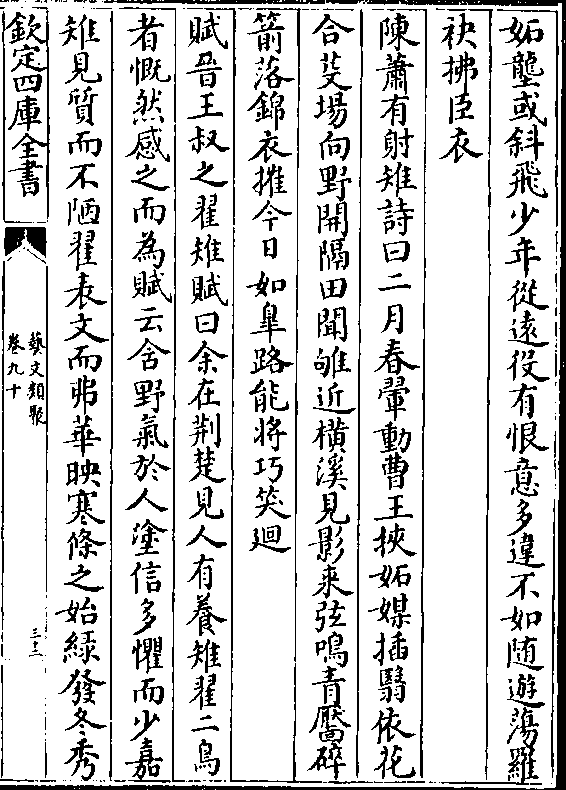 妬壟或斜飛少年從遠役有恨意多違不如随遊蕩羅
袂拂臣衣
陳蕭有射雉詩曰二月春翬動曹王挾妬媒插翳依花
合芟場向野開隔田聞雊近横溪見影來弦鳴青黶碎
箭落錦衣摧今日如臯路能将巧笑廻
賦晉王叔之翟雉賦曰余在荆楚見人有養雉翟二鳥
者慨然感之而為賦云舍野氣於人塗信多懼而少嘉
雉見質而不陋翟表文而弗華映寒條之始綠發冬秀
欽定四庫全書
藝文類聚
卷九十
三十三